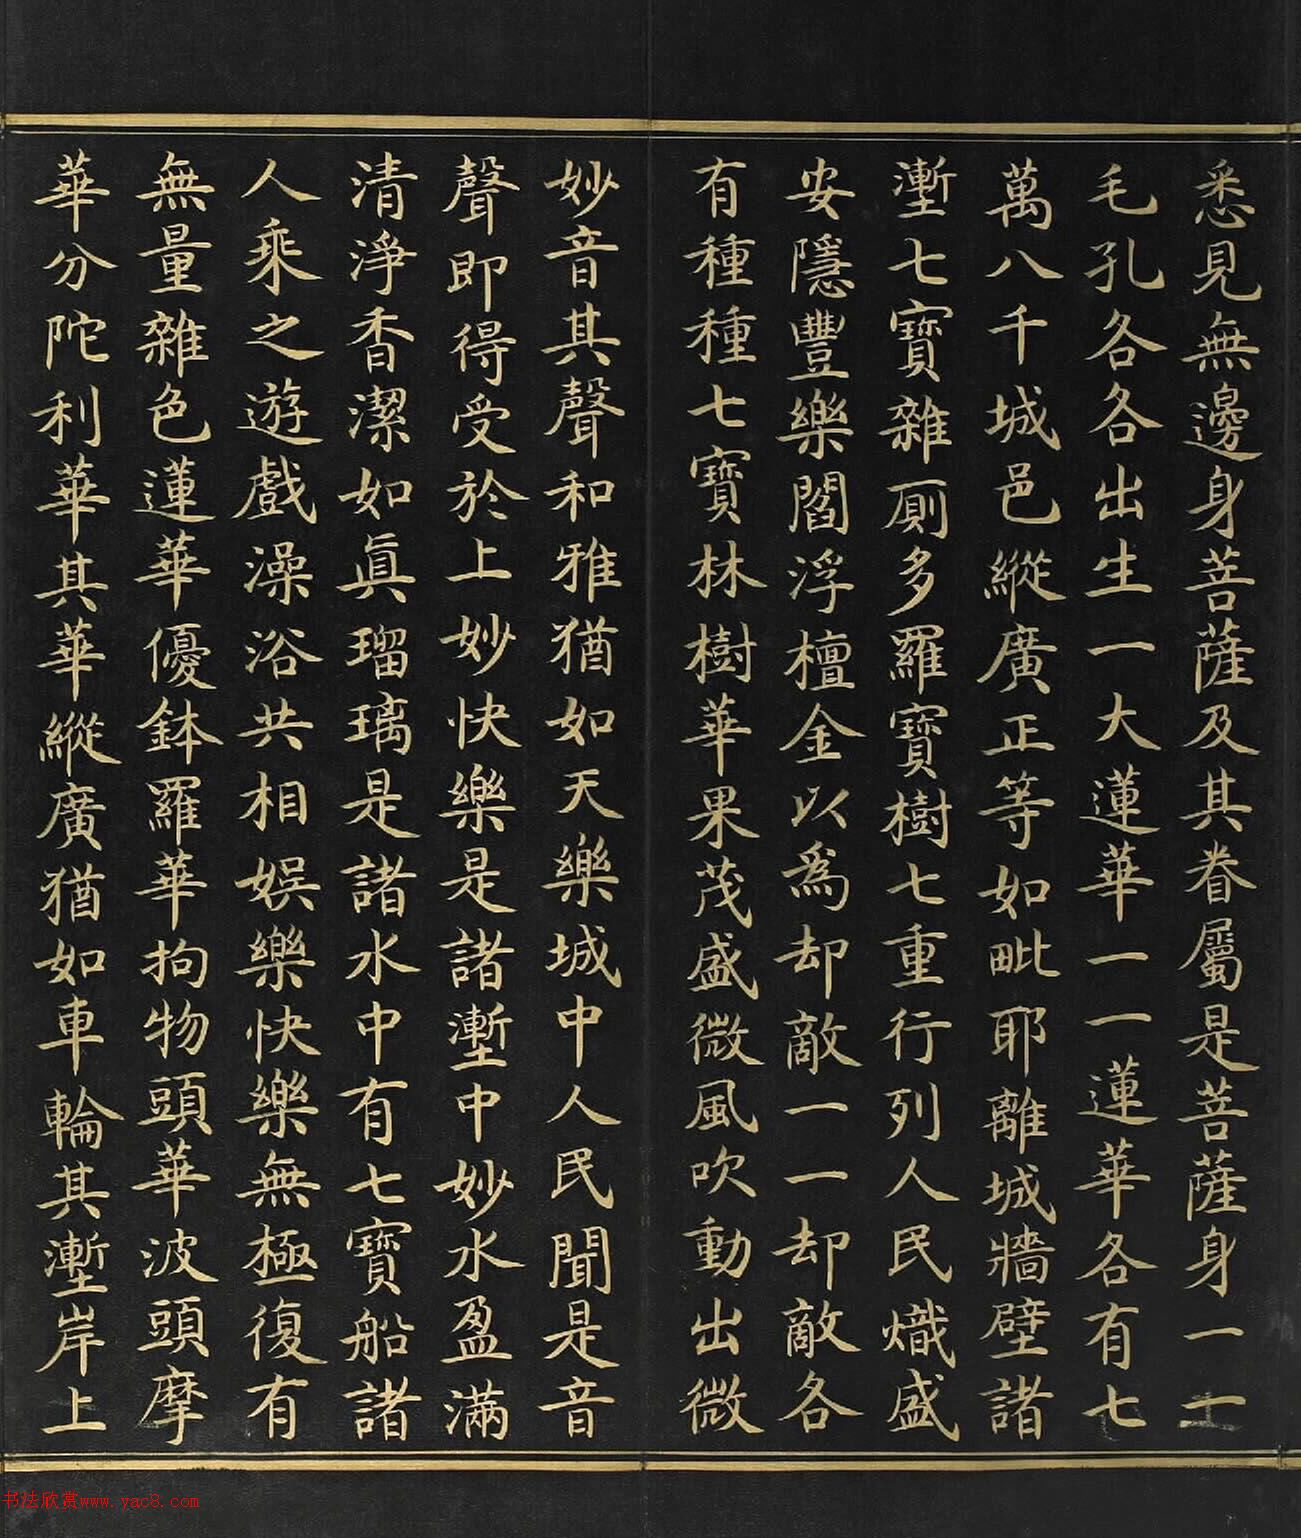 悉見無邊身菩薩及其眷屬是菩薩身一一
毛孔各各出生一大蓮華一一蓮華各有七
萬八千城邑縱廣正等如毗耶離城牆壁諸
壍七寶雜厠多羅寶樹七重行列人民熾盛
安隱豐樂閻浮檀金以爲却敵一一却敵各
有種種七寶林樹華果茂盛微風吹動出微
妙音其聲和雅猶如天樂城中人民聞是音
聲即得受於上妙快樂是諸壍中妙水盈滿
清淨香潔如真瑠璃是諸水中有七寶船諸
人乘之遊戲澡浴共相娛樂快樂無極復有
無量雜色蓮華優鉢羅華拘物頭華波頭摩
華分陀利華其華縱廣猶如車輪其壍岸上
书法欣赏www.yac8.com